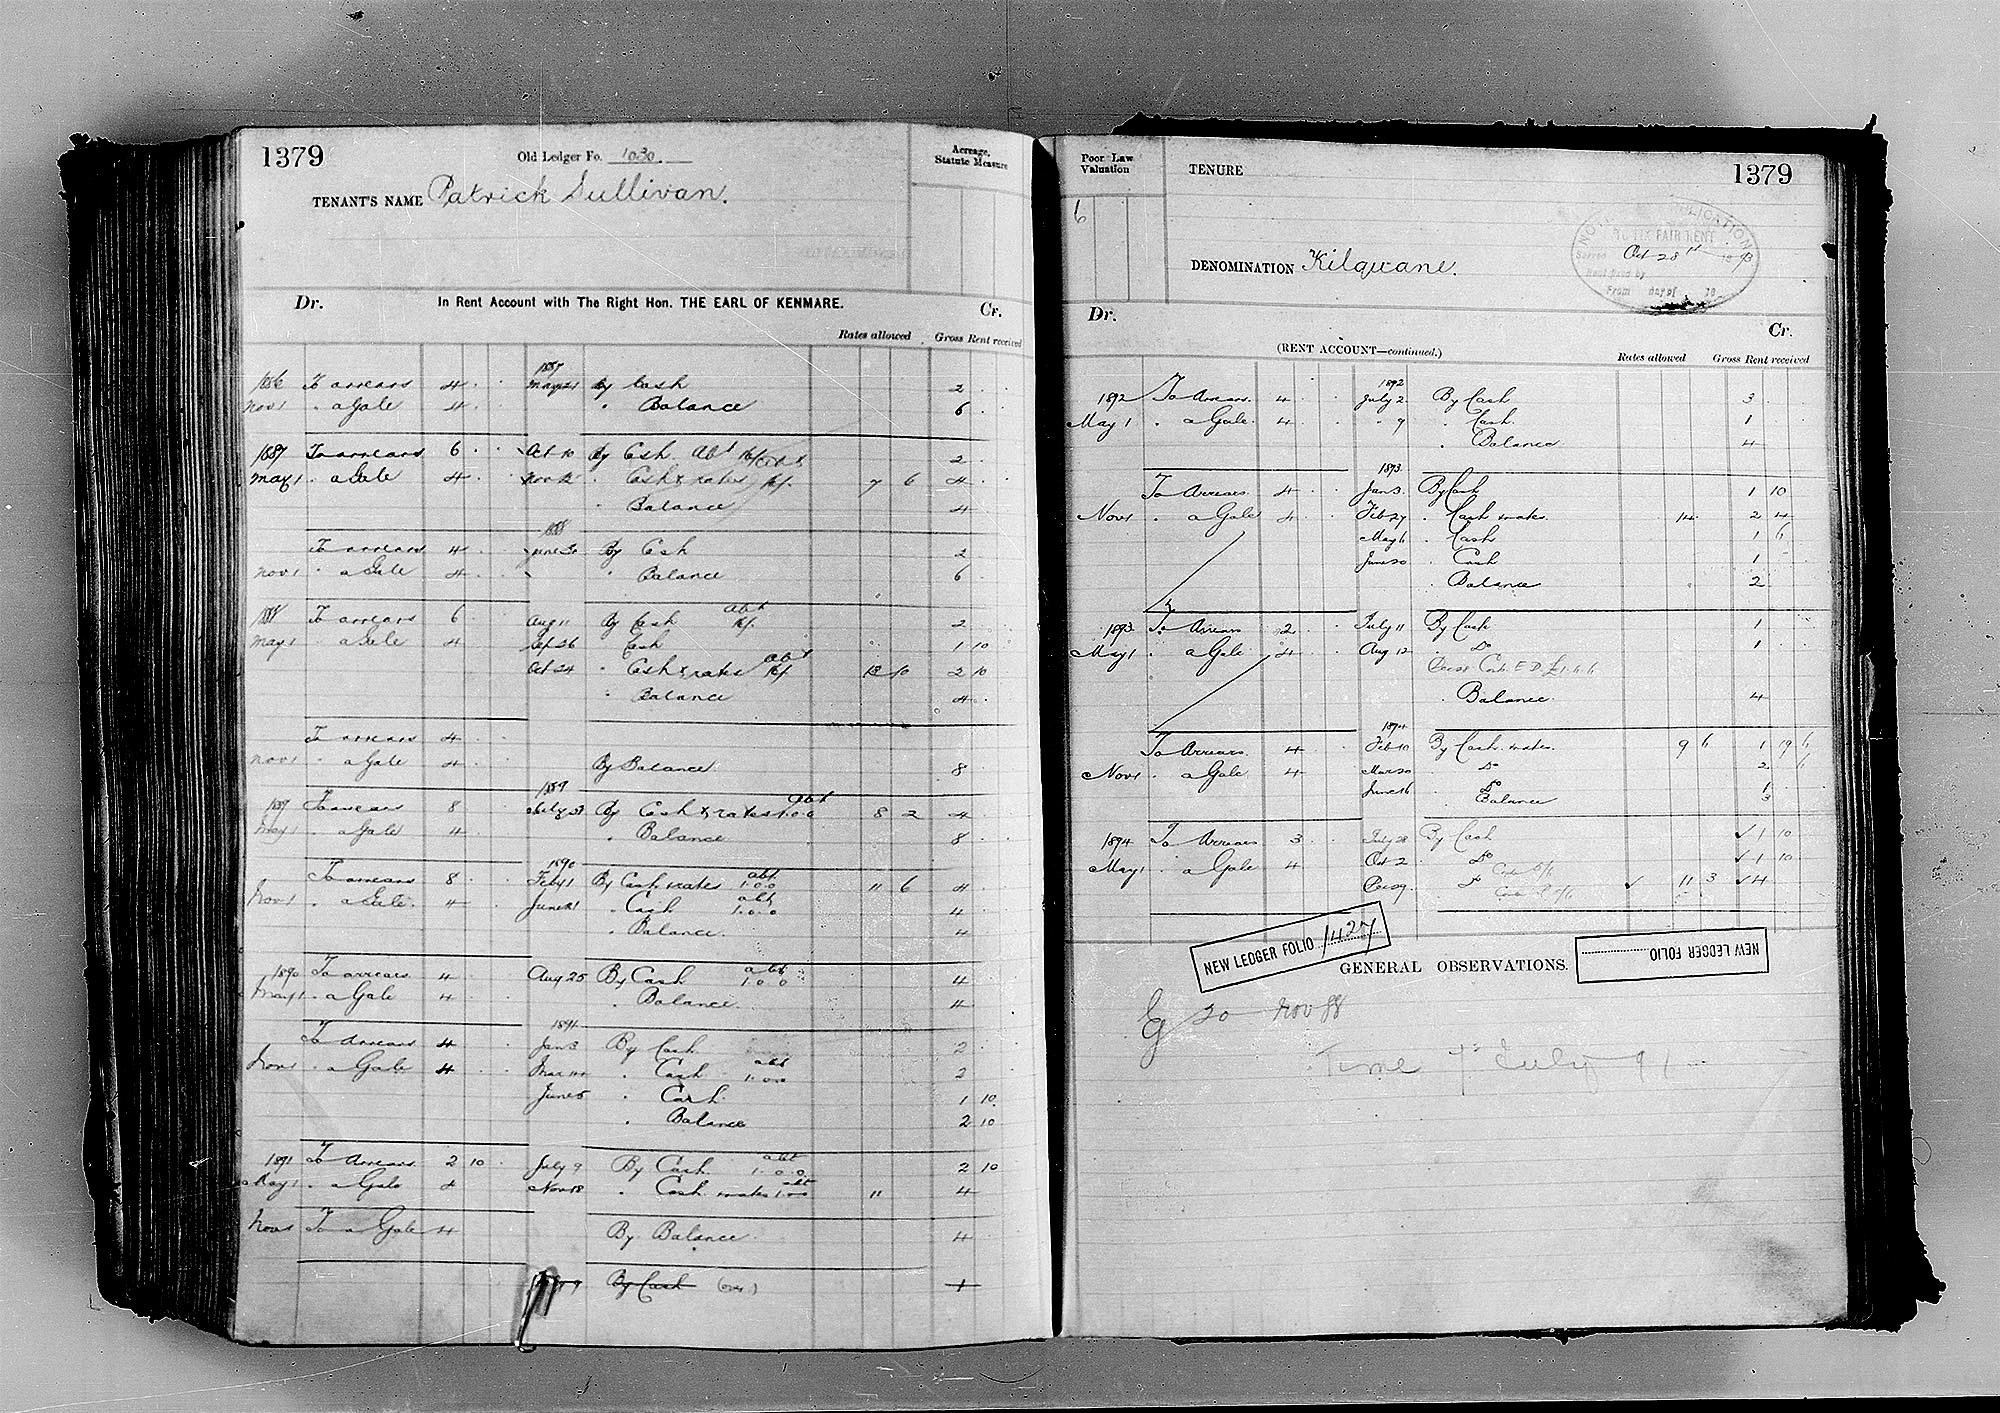 1379
Old Ledger Fo. 1030.
Acreage, Statute Measure
TENANT'S NAME Patrick Sullivan.
Dr. In Rent Account with The Right Hon. THE EARL OF KENMARE. Cr.
Rates allowed Gross Rent received
1887
1886 To arrears 4 May 21 By Cash 2
Nov 1 " a Gale 4 " Balance 6
1887 To arrears 6 Oct 10 By Cash Abt 2
May 1 " a Gale 4 Nov 12 " Cash & rates 7 6 4
" Balance 4
1888
To arrears 4 June 30 By Cash 2
Nov 1 " a Gale 4 " Balance 6
1888 To arrears 6 Aug 11 By Cash abt 2
May 1 " a Gale 4 Sep 26 Cash 1 10
Oct 24 " Cash & rates abt 13 10 2 10
" Balance 4
To arrears 4
Nov 1 " a Gale 4 By Balance 8
1889
1889 To arrears 8 July 23 By Cash & rates abt 1.0.0 8 2 4
May 1 " a Gale 4 " Balance 8
1890
To arrears 8 Feby 1 By Cash & rates abt 1.0.0 11 6 4
Nov 1 " a Gale 4 June 21 " Cash abt 1.0.0 4
" Balance 4
1890 To arrears 4 Aug 25 By Cash abt 1.0.0 4
May 1 " a Gale 4 " Balance 4
1891
To Arrears 4 Jan 3 By Cash 2
Nov 1 " a Gale 4 Mar 14 " Cash abt 1.0.0 2
June 5 " Cash 1 10
" Balance 2 10
1891 To Arrears 2 10 July 9 By Cash abt 1.0.0 2 10
May 1 " a Gale 4 Nov 18 " Cash & rates abt 1.0.0 11 4
Nov 1 To a Gale 4 By Balance 4
9 By Cash (over) 1
Poor Law Valuation
TENURE
1379
6
DENOMINATION Kilquane.
NOTICE APPLICATION
TO FIX FAIR RENT
Served Oct 28 1893
Rent fixed by
From day of 18
Dr. Cr.
(RENT ACCOUNT—continued.)
Rates allowed Gross Rent received
1892
1892 To Arrears 4 July 2 By Cash 3
May 1 " a Gale 4 " 9 " Cash 1
" Balance 4
1893
To Arrears 4 Jan 3 By Cash 1 10
Nov 1 " a Gale 4 Feb 27 " Cash & rates 14 2 4
May 6 " Cash 1 6
June 20 " Cash 1
" Balance 2
1893 To Arrears 2 July 11 By Cash 1
May 1 " a Gale 4 Aug 12 " Do 1
" Balance 4
1894
To Arrears 4 Feb 10 By Cash & rates 9 6 1 19 6
Nov 1 " a Gale 4 Mar 20 " Do 2
June 16 " Do 1
" Balance 3
1894 To Arrears 3 July 28 By Cash ✓ 1 10
May 1 " a Gale 4 Oct 2 Do ✓ 1 10
Dec 29 Do ✓ 11 3 ✓ 4
NEW LEDGER FOLIO 1427
NEW LEDGER FOLIO
GENERAL OBSERVATIONS.
20 Nov 88
Time July 91